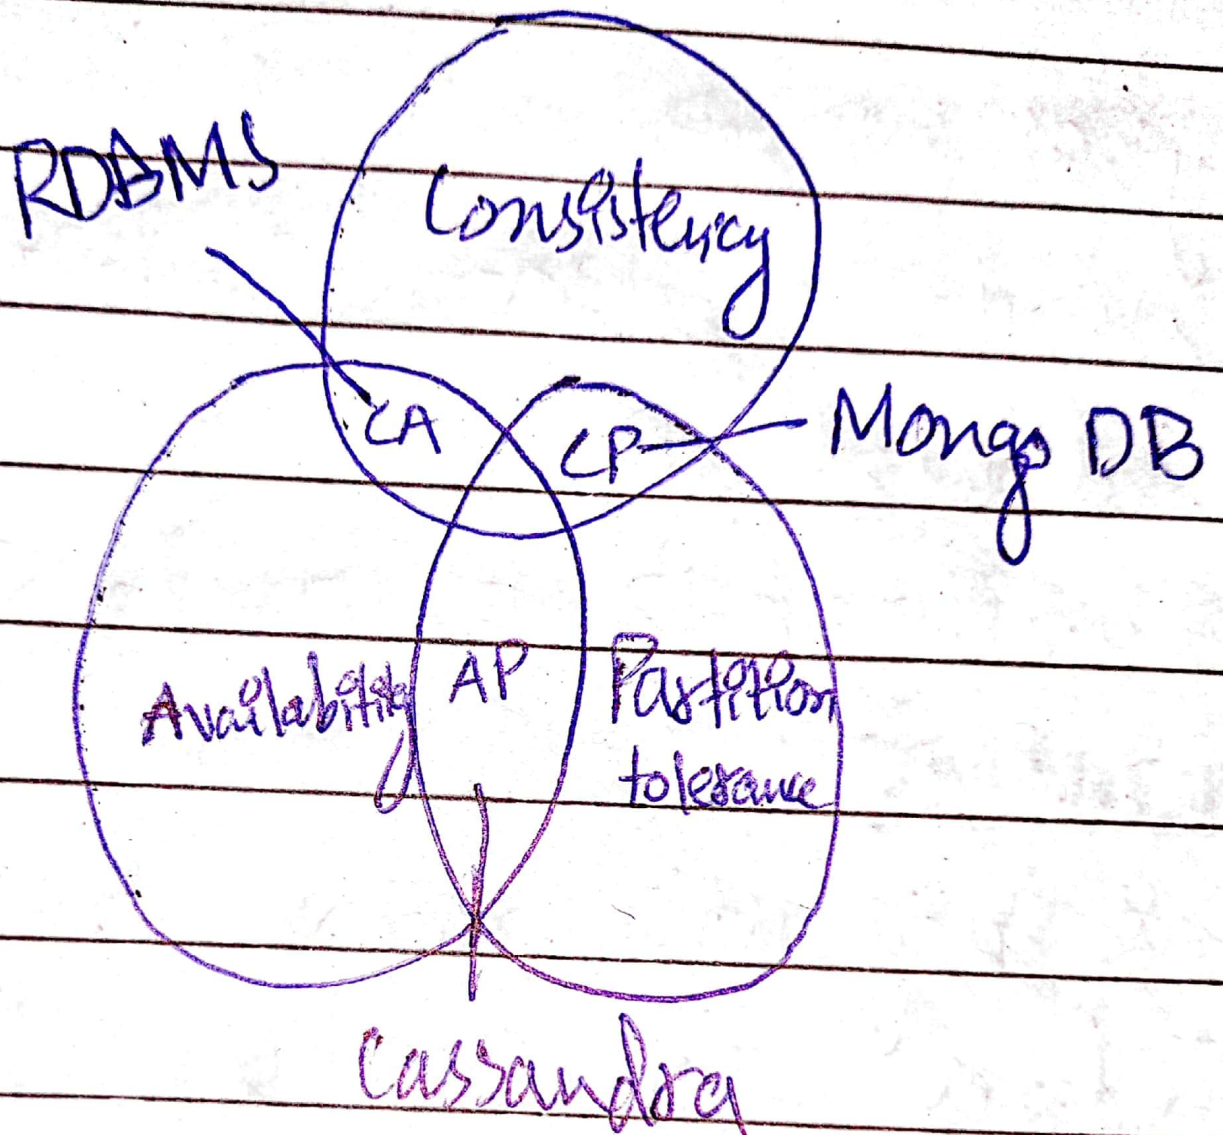 RDBMS
Consistency
CA
CP
Mongo DB
Availability
AP
Partition
tolerance
Cassandra